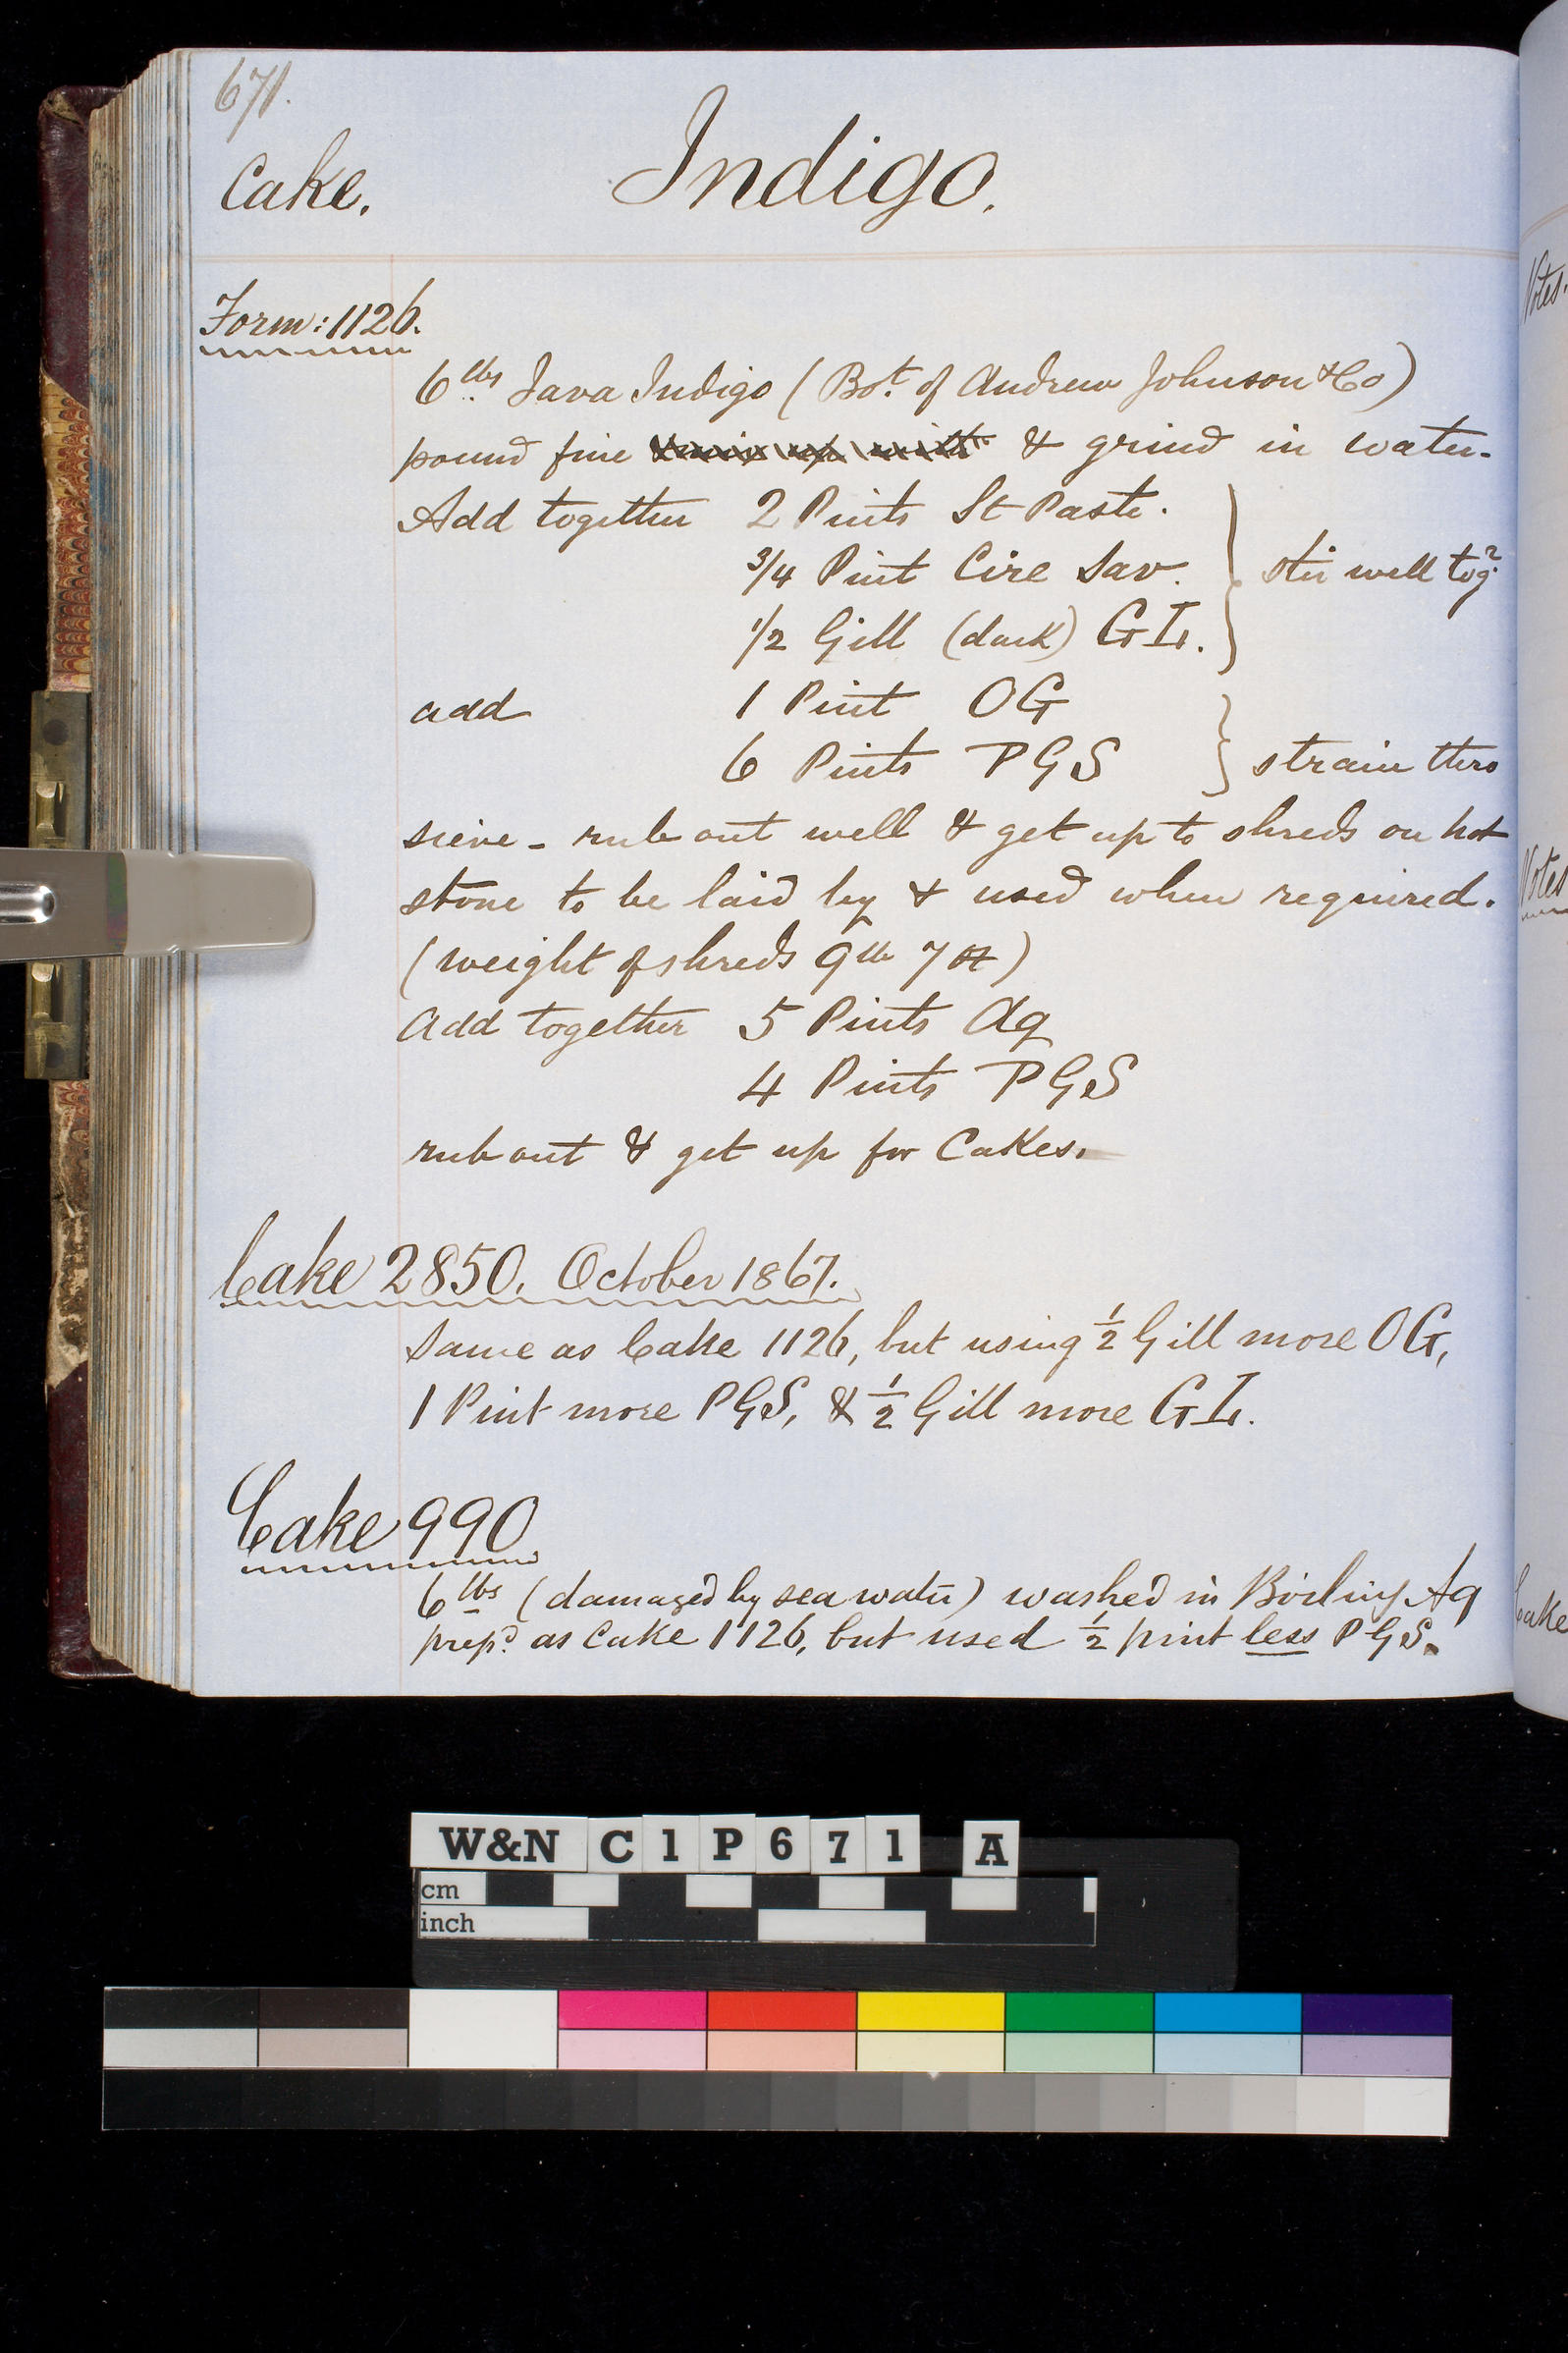 671.
Cake. Indigo.
Form: 1126.
6 lbs Java Indigo (Bot. of Andrew Johnson & Co)
pound fine & mix up with & grind in water.
Add together 2 Pints St Paste.
3/4 Pint Cire Sav. } stir well togr.
1/2 Gill (dark) GL.
add 1 Pint OG
6 Pints PGS } strain thro
sieve - rub out well & get up to shreds on hot
stone to be laid by & used when required.
(weight of shreds 9 lb 7 oz)
Add together 5 Pints Aq
4 Pints PGS
rub out & get up for Cakes.
Cake 2850. October 1867.
Same as Cake 1126, but using 1/2 Gill more OG,
1 Pint more PGS, & 1/2 Gill more GL.
Cake 990.
6 lbs (damaged by sea water) washed in Boiling Aq
prepd. as Cake 1126, but used 1/2 pint less PGS.
Notes.
Notes
Cake
W&N C1P671 A
cm
inch